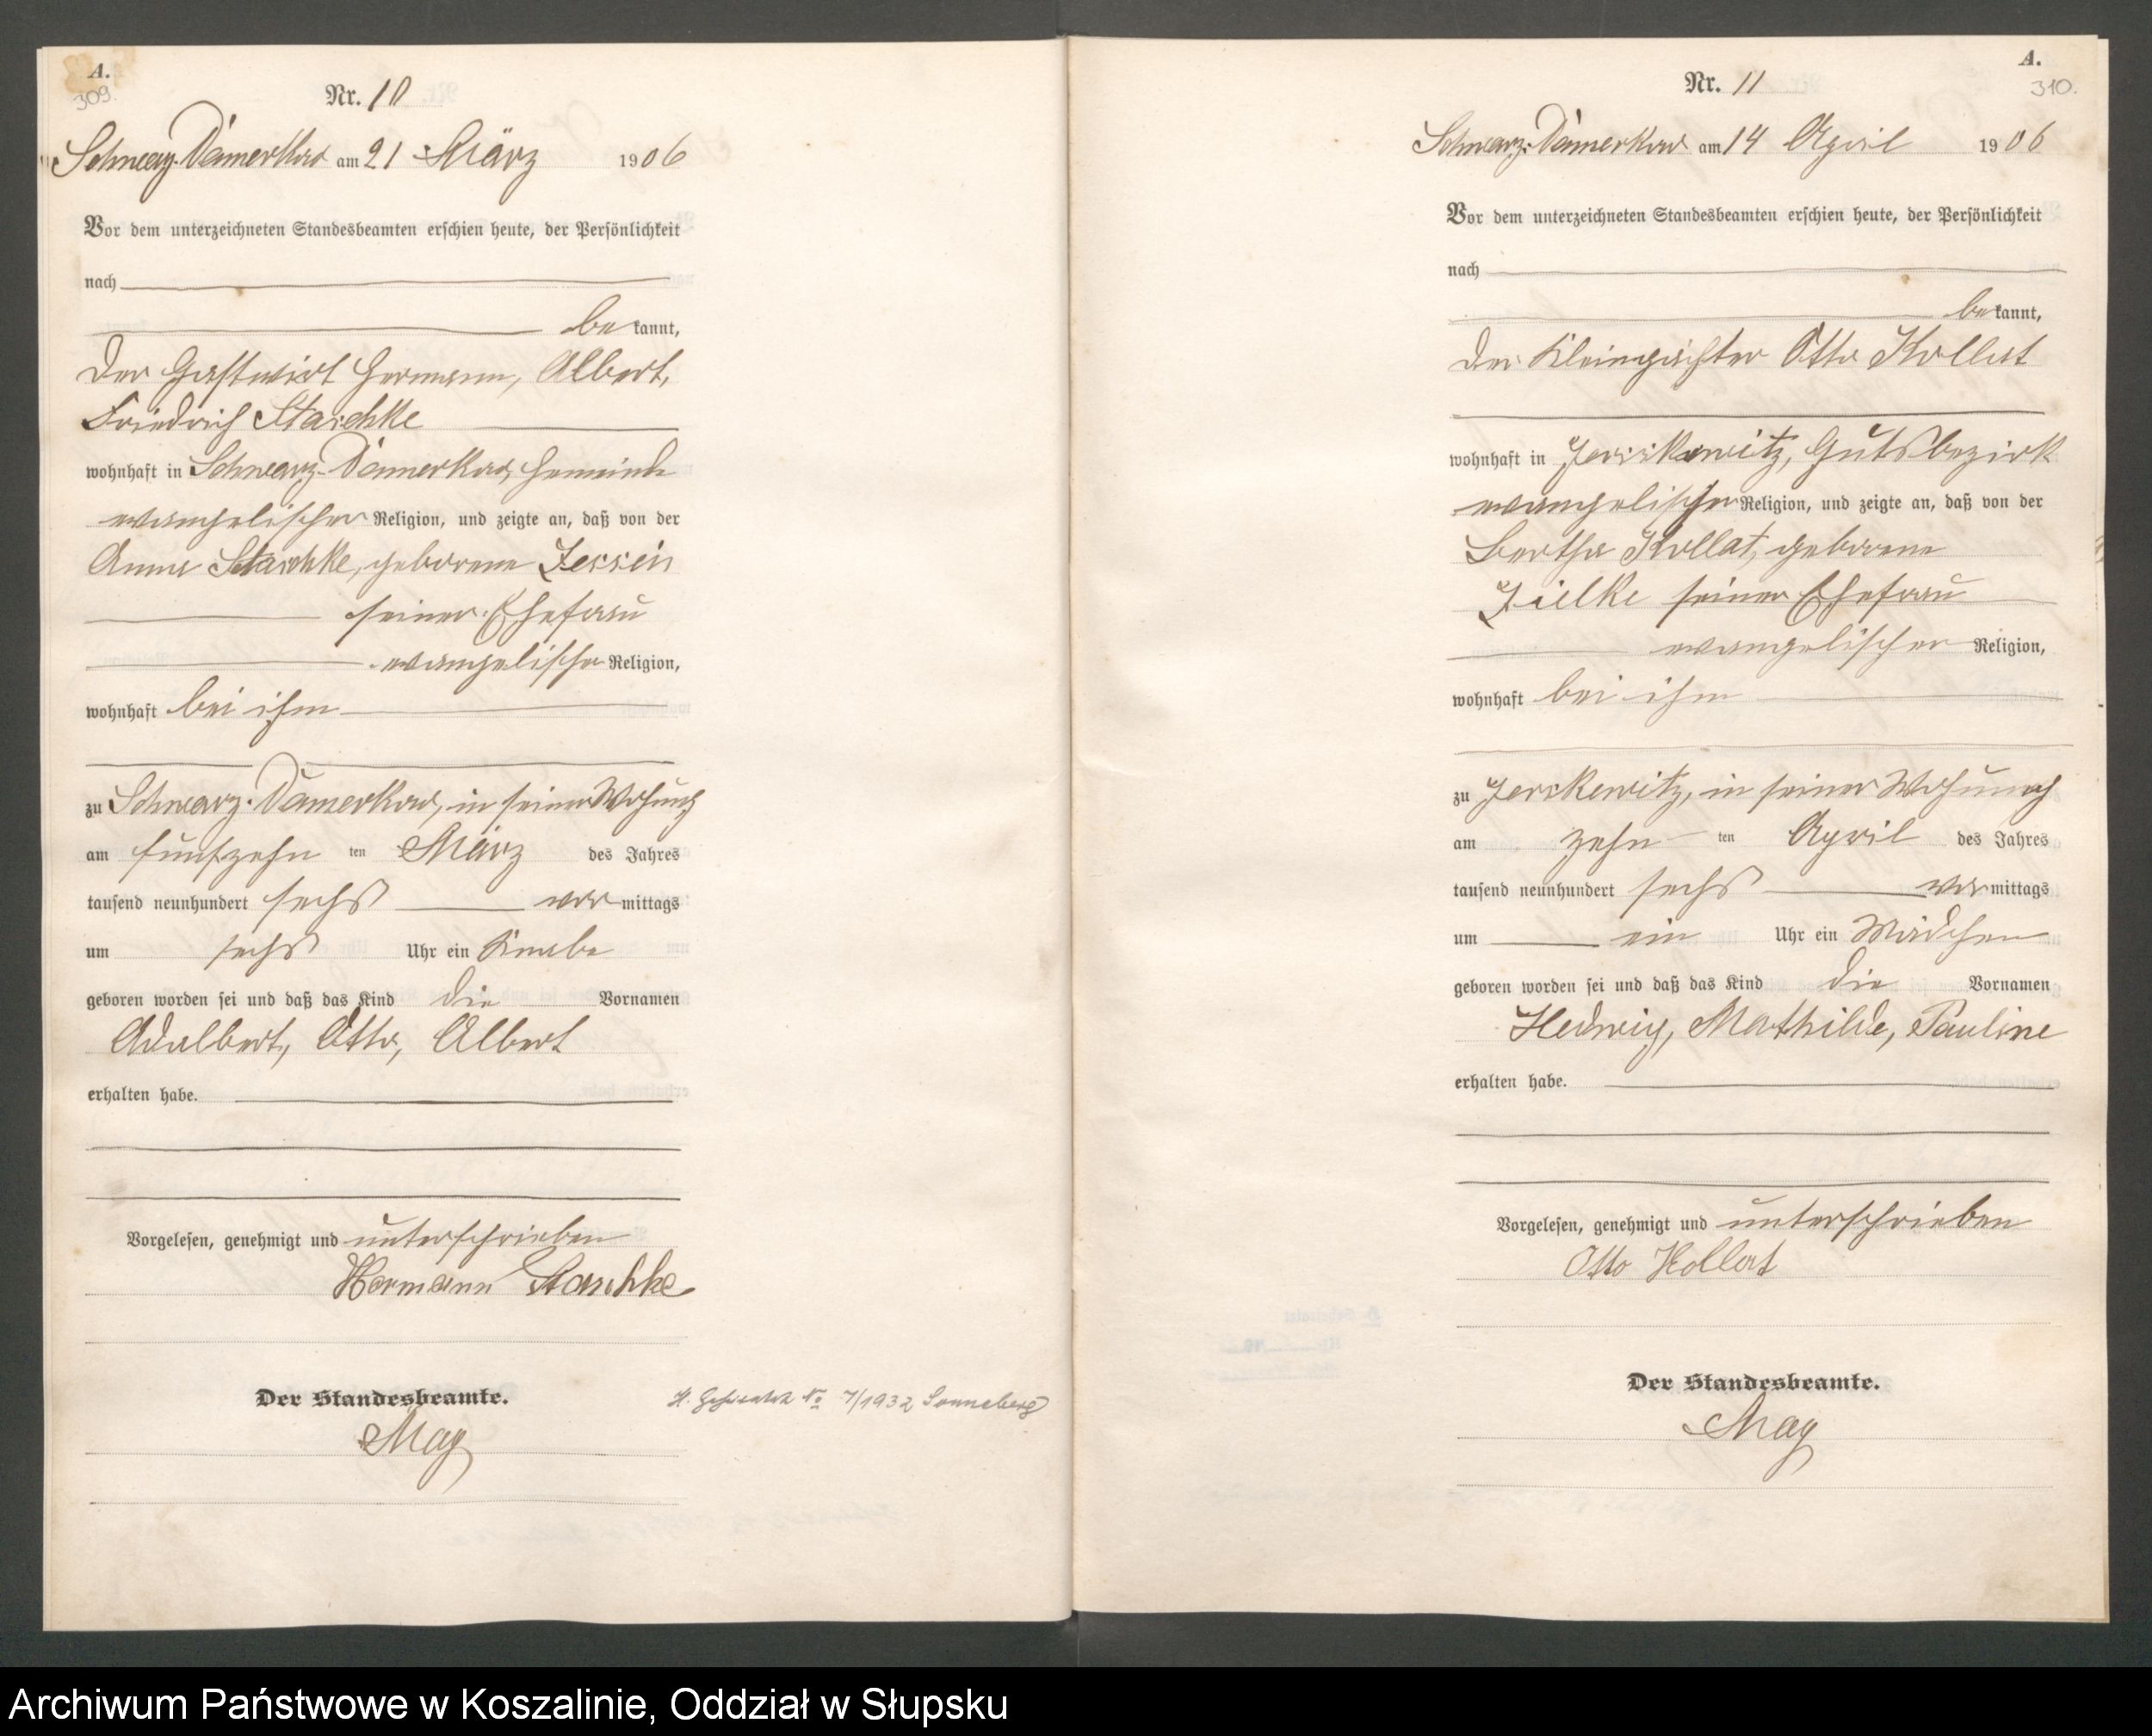 A.
309.
Nr. 10
Schwarz-Damerkow am 21 März 1906
Vor dem unterzeichneten Standesbeamten erschien heute, der Persönlichkeit
nach
bekannt,
der Gastwirt Hermann, Albert,
Friedrich Staschke
wohnhaft in Schwarz-Damerkow, Gemeinde
evangelischer Religion, und zeigte an, daß von der
Anna Staschke, geborene Zessin
seiner Ehefrau
evangelischer Religion,
wohnhaft bei ihm
zu Schwarz-Damerkow, in seiner Wohnung
am fünfzehn ten März des Jahres
tausend neunhundert sechs vormittags
um sechs Uhr ein Knabe
geboren worden sei und daß das Kind die Vornamen
Adalbert, Otto, Albert
erhalten habe.
Vorgelesen, genehmigt und unterschrieben
Hermann Staschke
Der Standesbeamte.
Mag
H. Geheiratet No 7/1932 Sonneberg
A.
310.
Nr. 11
Schwarz-Damerkow am 14 April 1906
Vor dem unterzeichneten Standesbeamten erschien heute, der Persönlichkeit
nach
bekannt,
der Kleinpächter Otto Kollat
wohnhaft in Jerskewitz, Gutsbezirk
evangelischer Religion, und zeigte an, daß von der
Bertha Kollat, geborene
Zielke seiner Ehefrau
evangelischer Religion,
wohnhaft bei ihm
zu Jerskewitz, in seiner Wohnung
am zehn ten April des Jahres
tausend neunhundert sechs vormittags
um ein Uhr ein Mädchen
geboren worden sei und daß das Kind die Vornamen
Hedwig, Mathilde, Pauline
erhalten habe.
Vorgelesen, genehmigt und unterschrieben
Otto Kollat
Der Standesbeamte.
Mag
Archiwum Państwowe w Koszalinie, Oddział w Słupsku